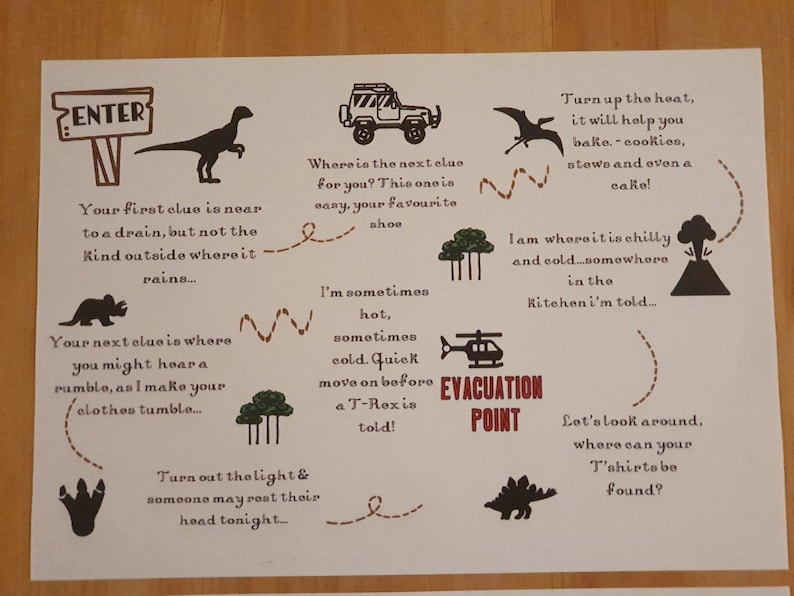 ENTER
Your first clue is near
to a drain, but not the
kind outside where it
rains...
Where is the next clue
for you? This one is
easy, your favourite
shoe
Turn up the heat,
it will help you
bake. - cookies,
stews and even a
cake!
I am where it is chilly
and cold...somewhere
in the
kitchen i'm told...
Let's look around,
where can your
T'shirts be
found?
Turn out the light &
someone may rest their
head tonight...
Your next clue is where
you might hear a
rumble, as I make your
clothes tumble...
I'm sometimes
hot,
sometimes
cold. Quick
move on before
a T-Rex is
told!
EVACUATION
POINT